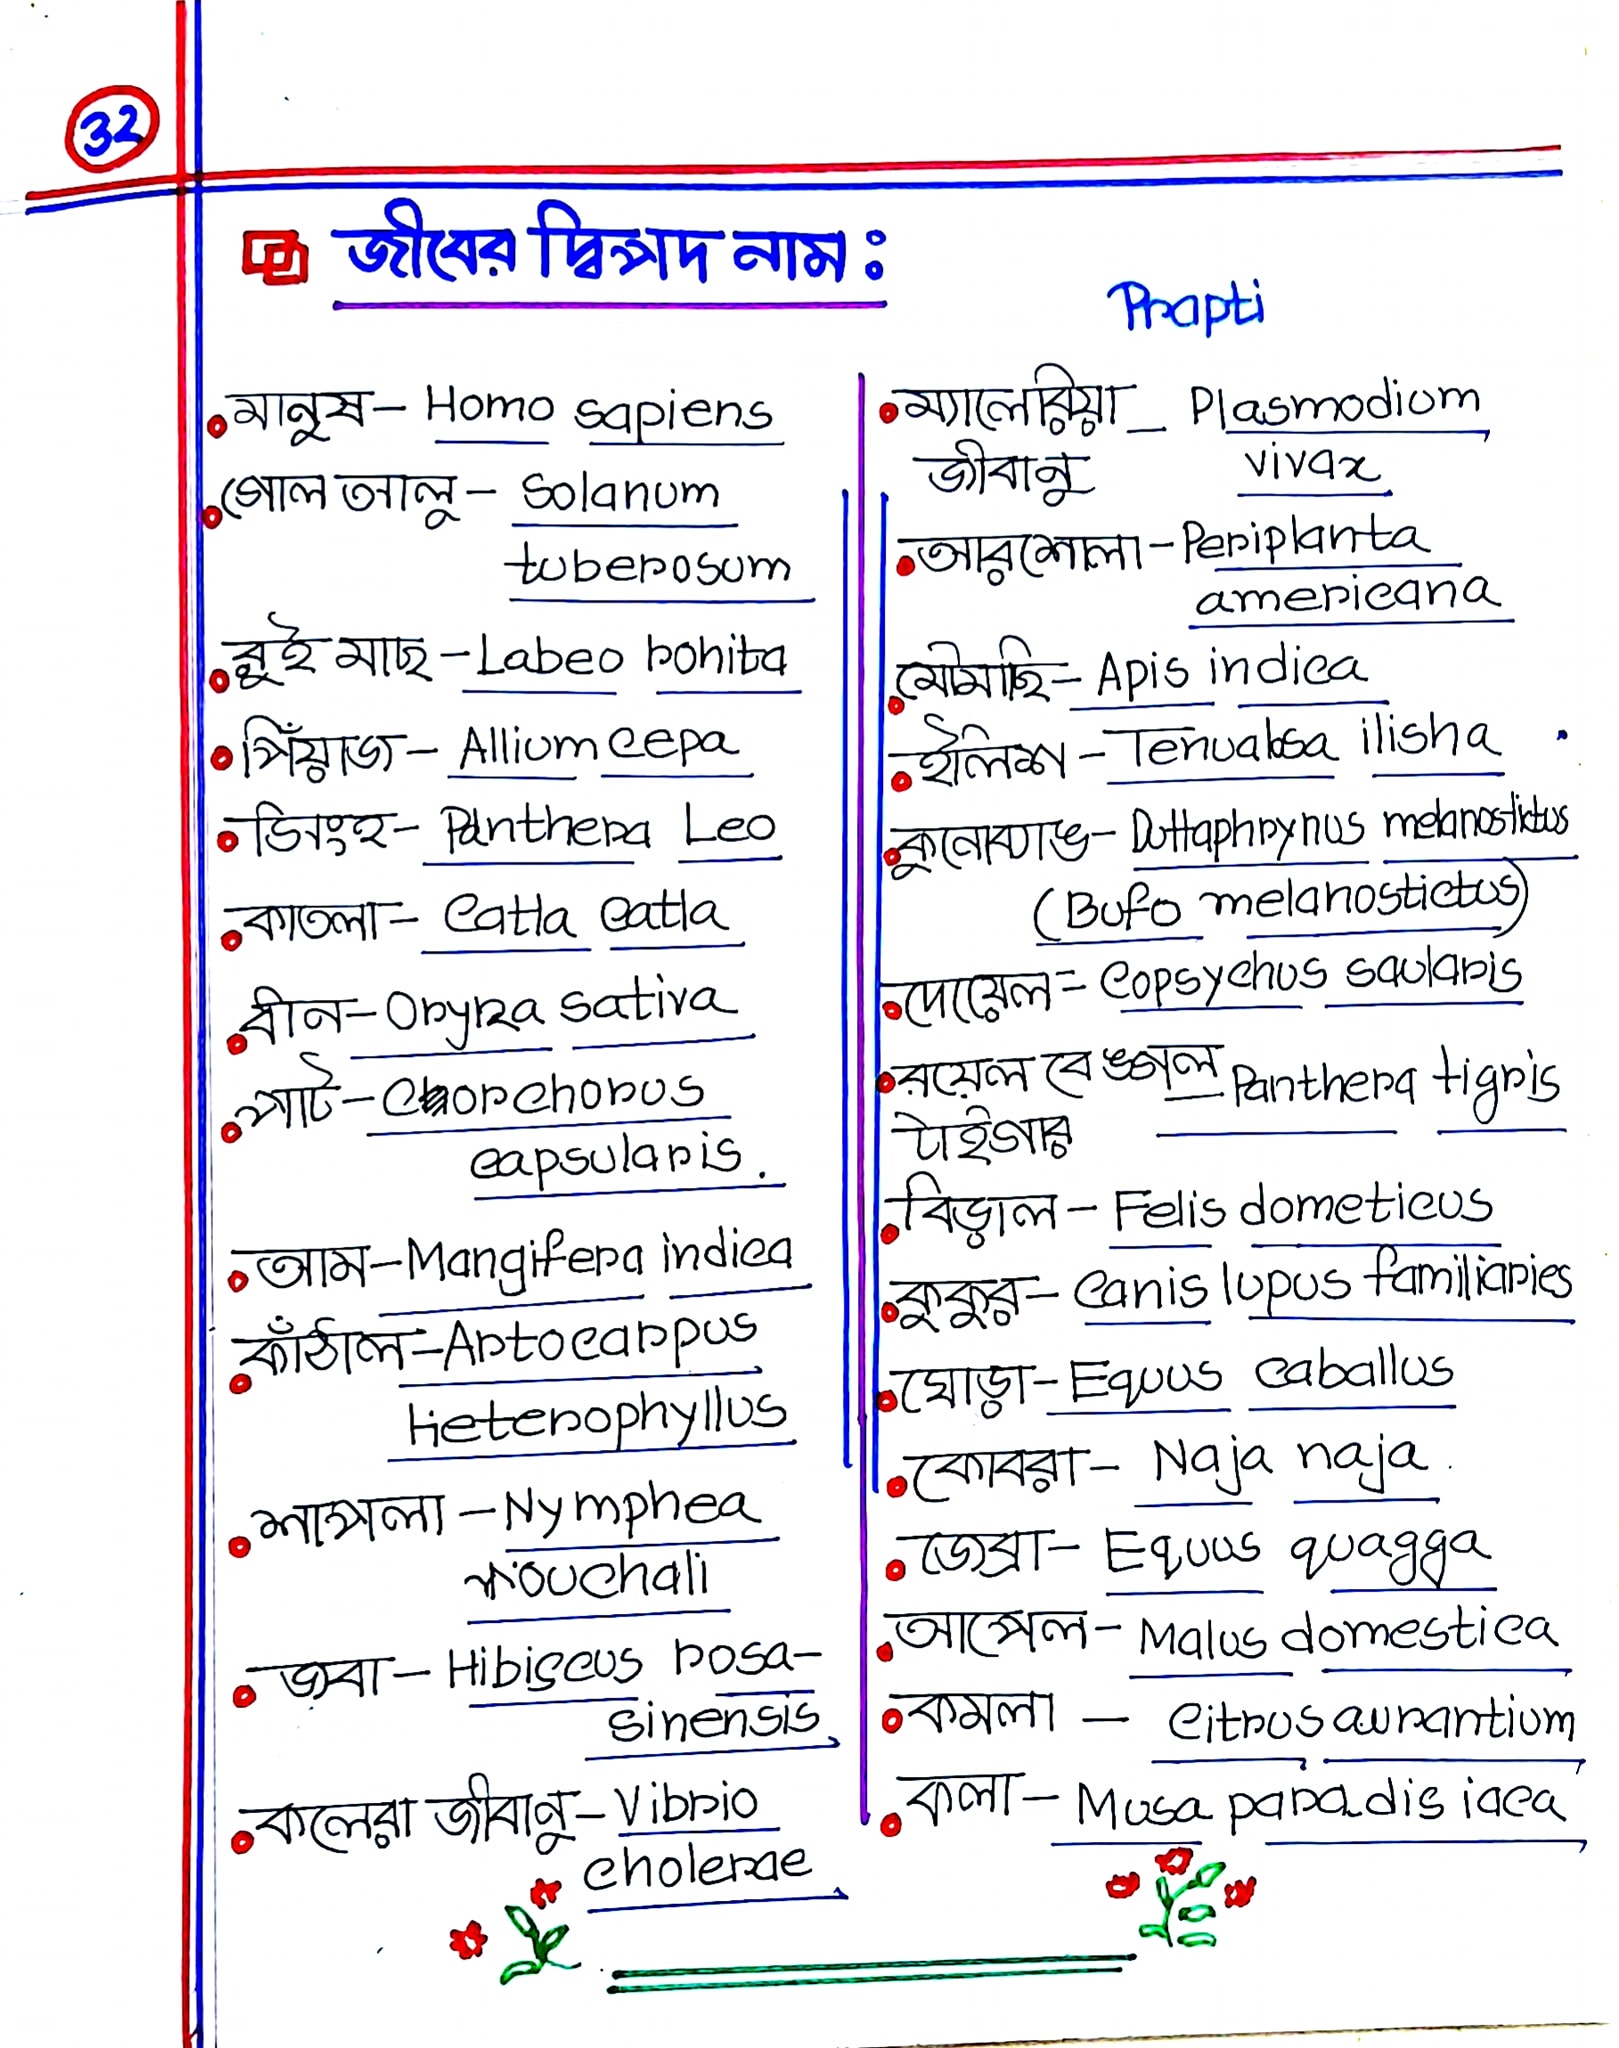 32
জীবের দ্বিপদ নাম :
Prapti
মানুষ - Homo sapiens
গোল আলু - Solanum
tuberosum
রুই মাছ - Labeo rohita
পিঁয়াজ - Allium cepa
সিংহ - Panthera Leo
কাতলা - Catla catla
ধান - Oryza sativa
পাট - Chorchorus
capsularis.
আম - Mangifera indica
কাঁঠাল - Artocarpus
Heterophyllus
শাপলা - Nymphea
nouchali
জবা - Hibiscus rosa-
sinensis
কলেরা জীবানু - Vibrio
cholerae
ম্যালেরিয়া - Plasmodium
জীবানু vivax
আরশোলা - Periplanta
americana
মৌমাছি - Apis indica
ইলিশ - Tenualosa ilisha
কুনোব্যাঙ - Duttaphrynus melanostictus
(Bufo melanostictus)
দোয়েল = Copsychus saularis
রয়েল বেঙ্গল Panthera tigris
টাইগার
বিড়াল - Felis dometicus
কুকুর - Canis lupus familiaries
ঘোড়া - Equus caballus
কোবরা - Naja naja.
জেব্রা - Equus quagga
আপেল - Malus domestica
কমলা - Citrus aurantium
কলা - Musa paradisiaca